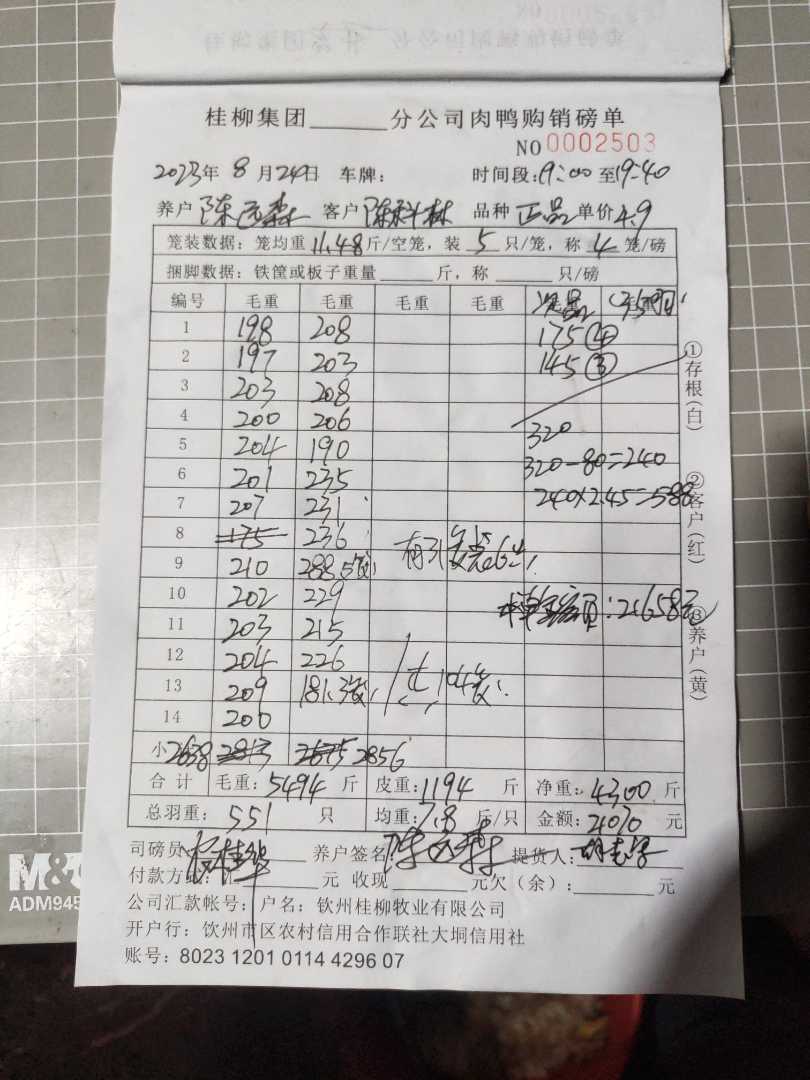 桂柳集团______分公司肉鸭购销磅单
NO 0002503
2023年 8 月 24日 车牌: 时间段: 19:00 至 19:40
养户 陈 森 客户 陈科林 品种 正品 单价 4.9
笼装数据: 笼均重 11.48 斤/空笼, 装 5 只/笼, 称 4 笼/磅
捆脚数据: 铁筐或板子重量______斤, 称______只/磅
编号 毛重 毛重 毛重 毛重 毛重
1 198 208 175 ④
2 197 203 145 ③
3 203 208
4 200 206 320
5 204 190
6 201 235 320-80=240
7 207 231 240×2.45=588
8 175 236
9 210 288
10 202 229
11 203 215 2.1658
12 204 226
13 209 181 共104
14 200
小 2638 2813 2675 2856
合计 毛重: 5494 斤 皮重: 1194 斤 净重: 4300 斤
总羽重: 551 只 均重: 7.8 斤/只 金额: 21070 元
司磅员 养户签名 陈 森 提货人:
付款方式: 汇______元 收现______元欠(余):______元
公司汇款帐号: 户名: 钦州桂柳牧业有限公司
开户行: 钦州市区农村信用合作联社大垌信用社
账号: 8023 1201 0114 4296 07
①存根(白)
②客户(红)
③养户(黄)
M&G
ADM945